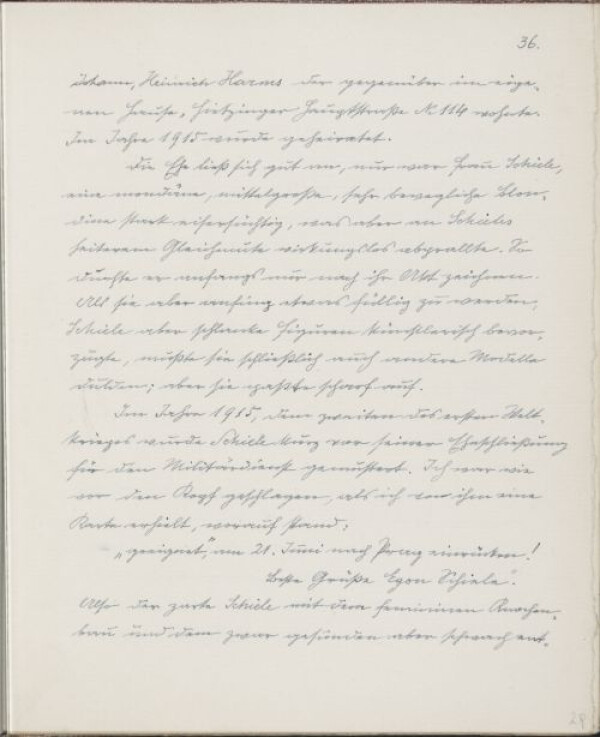 36.
Johann, Heinrich Harms der gegenüber im eige-
nen Hause, Hietzinger Hauptstraße N. 114 wohnte.
Im Jahre 1915 wurde geheiratet.
Die Ehe ließ sich gut an, nur war Frau Schiele,
eine mondäne, mittelgroße, sehr bewegliche Blon-
dine stark eifersüchtig, was aber an Schieles
heiterem Gleichmute wirkungslos abprallte. So
durfte er anfangs nur nach ihr Akt zeichnen.
Als sie aber anfing etwas füllig zu werden,
Schiele aber schlanke Figuren künstlerisch bevor-
zugte, mußte sie schließlich auch andere Modelle
dulden; aber sie paßte scharf auf.
Im Jahre 1915, dem zweiten des ersten Welt-
krieges wurde Schiele kurz vor seiner Eheschließung
für den Militärdienst gemustert. Ich war wie
vor den Kopf geschlagen, als ich von ihm eine
Karte erhielt, worauf stand:
„geeignet", am 21. Juni nach Prag einrücken!
Beste Grüße Egon Schiele".
Also der zarte Schiele mit dem femininen Knochen-
bau und dem zwar gesunden aber schwach ent-